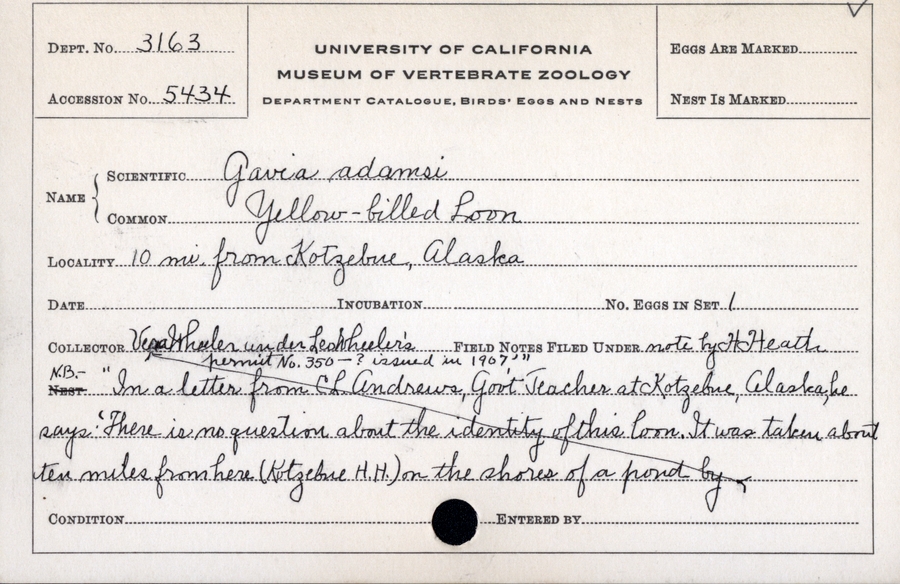 DEPT. No. 3163
ACCESSION No. 5434
UNIVERSITY OF CALIFORNIA
MUSEUM OF VERTEBRATE ZOOLOGY
DEPARTMENT CATALOGUE, BIRDS' EGGS AND NESTS
EGGS ARE MARKED
NEST IS MARKED
NAME
SCIENTIFIC Gavia adamsi
COMMON Yellow-billed Loon
LOCALITY 10 mi. from Kotzebue, Alaska
DATE INCUBATION No. EGGS IN SET 1
COLLECTOR Vera Wheeler under Les Wheeler's FIELD NOTES FILED UNDER note by H Heath
permit No. 350—? issued in 1907,'"
N.B.-
NEST "In a letter from C L Andrews, Gov't Teacher at Kotzebue, Alaska, he
says 'There is no question about the identity of this Loon. It was taken about
ten miles from here (Kotzebue H.H.) on the shores of a pond by
CONDITION ENTERED BY